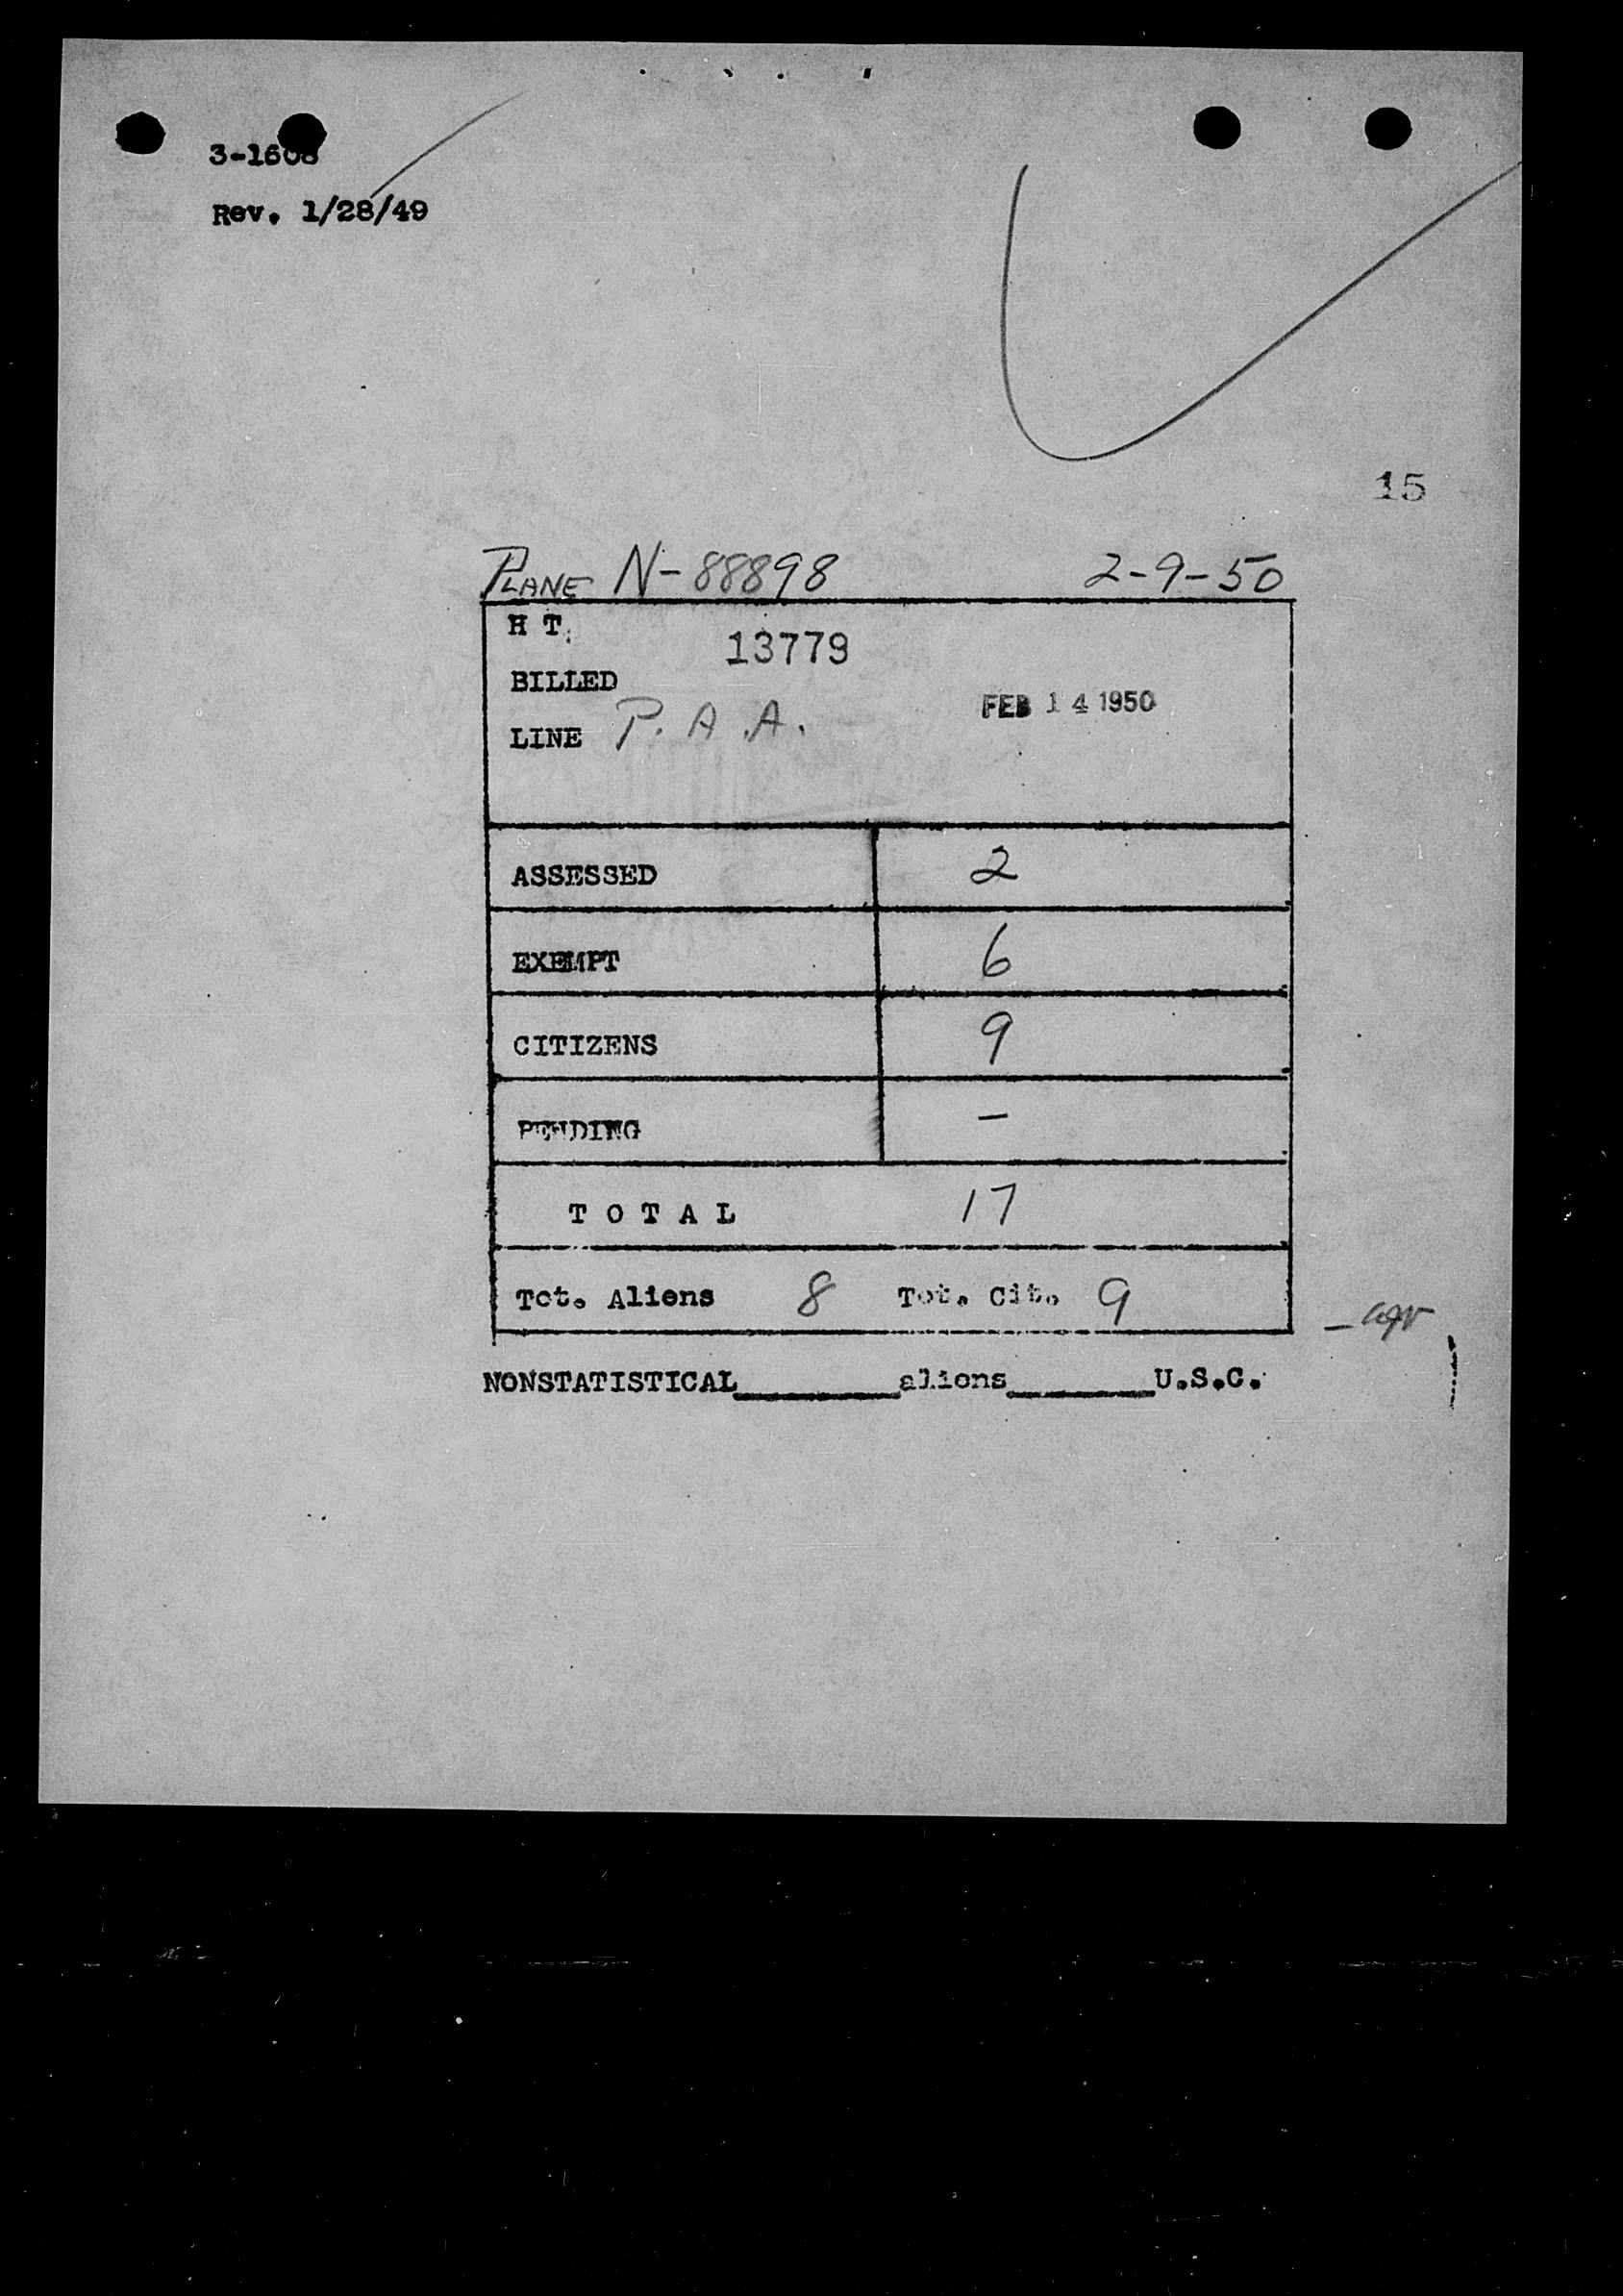 3-1608
Rev. 1/28/49
15
PLANE N-88898 2-9-50
H T.
13779
BILLED
FEB 14 1950
LINE P. A. A.
ASSESSED 2
EXEMPT 6
CITIZENS 9
PENDING –
T O T A L 17
Tot. Aliens 8 Tot. Cit. 9
NONSTATISTICAL________aliens________U.S.C.